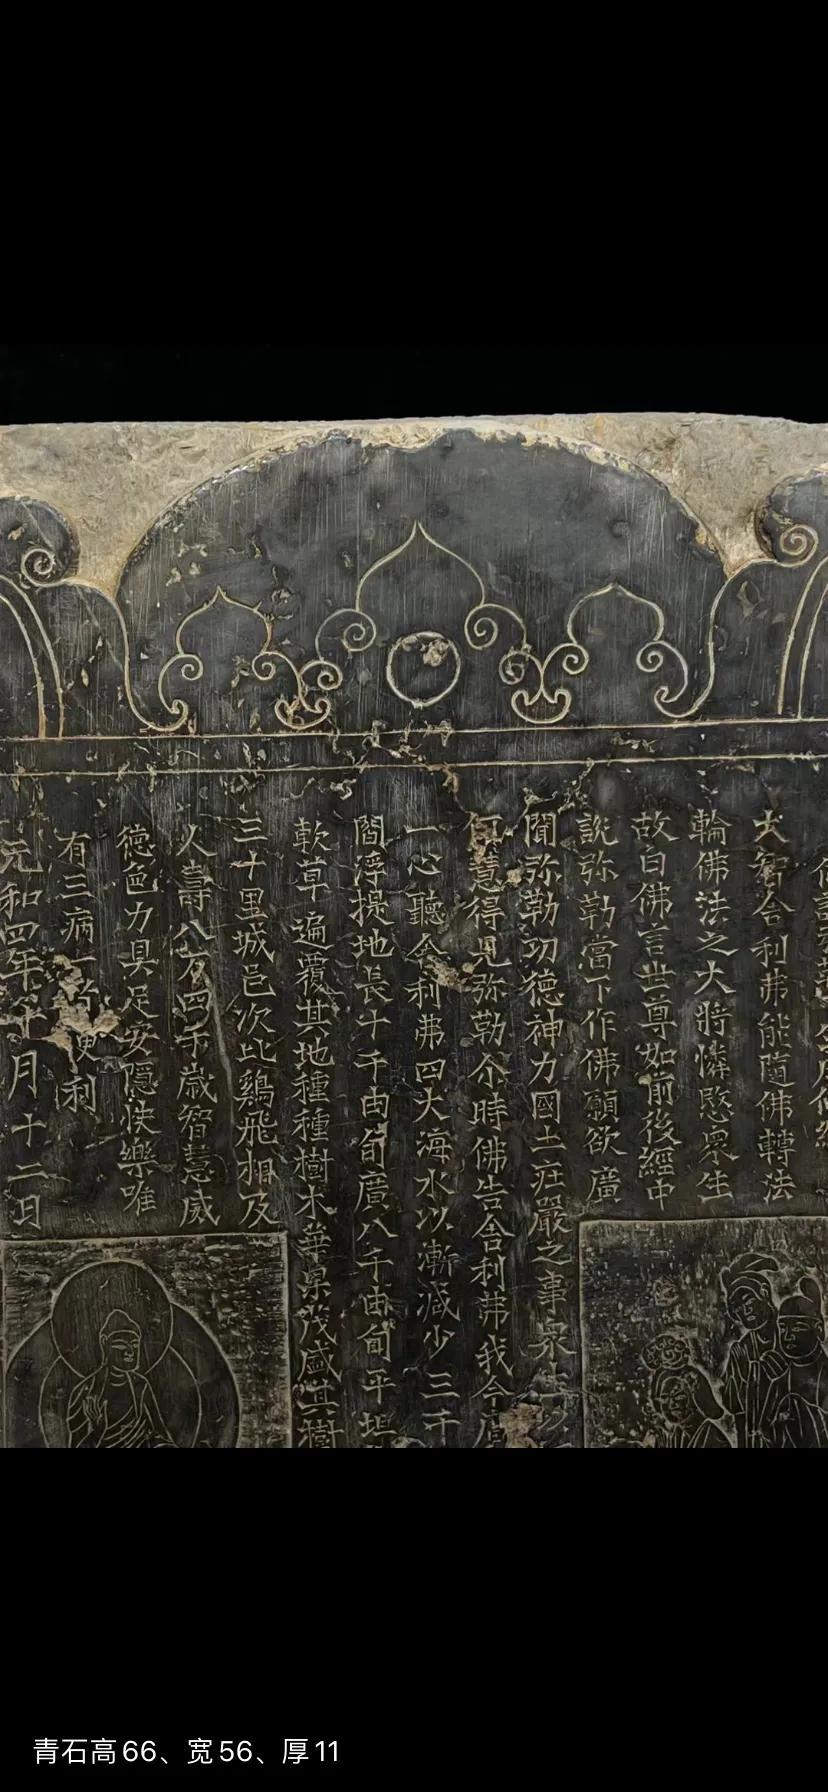 大智舍利弗能隨佛轉法
輪佛法之大將憐愍眾生
故白佛言世尊如前後經中
說弥勒當下作佛願欲廣
聞弥勒功德神力國土庄嚴之事眾生以
慧得見弥勒尒時佛告舍利弗我今廣
一心聽舍利弗四大海水以漸減少三千
閻浮提地長十千由旬廣八千由旬平坦
軟草遍覆其地種種樹木華菓茂盛其樹
三十里城邑次比鷄飛相及
人壽八万四千歲智慧威
德色力具足安隱快樂唯
有三病一者便利
元和四年十月十二日
青石高66、宽56、厚11